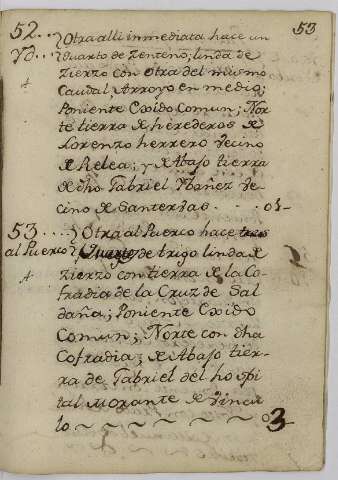 53
52... } Otra alli inmediata hace un
Yd... } quarto de Zenteno; linda de
Zierzo con otra del mismo
A
Caudal Arroyo en medio;
Poniente Exido Comun; Nor
te tierra de herederos de
Lorenzo herrero vecino
de Relea; y de Abajo tierra
de dho Gabriel Ybañez Ve-
cino de Santervas. - - 01-
53.... } Otra al Puerco hace tres
al Puerco } Quartos de trigo linda de
A
Zierzo con tierra de la Co-
fradia de la Cruz de Sal
daña; Poniente Exido
Comun; Norte con dha
Cofradia; de Abajo tier-
ra de Gabriel del hospi
tal Morante de Vincu
lo ~~~~~ 03